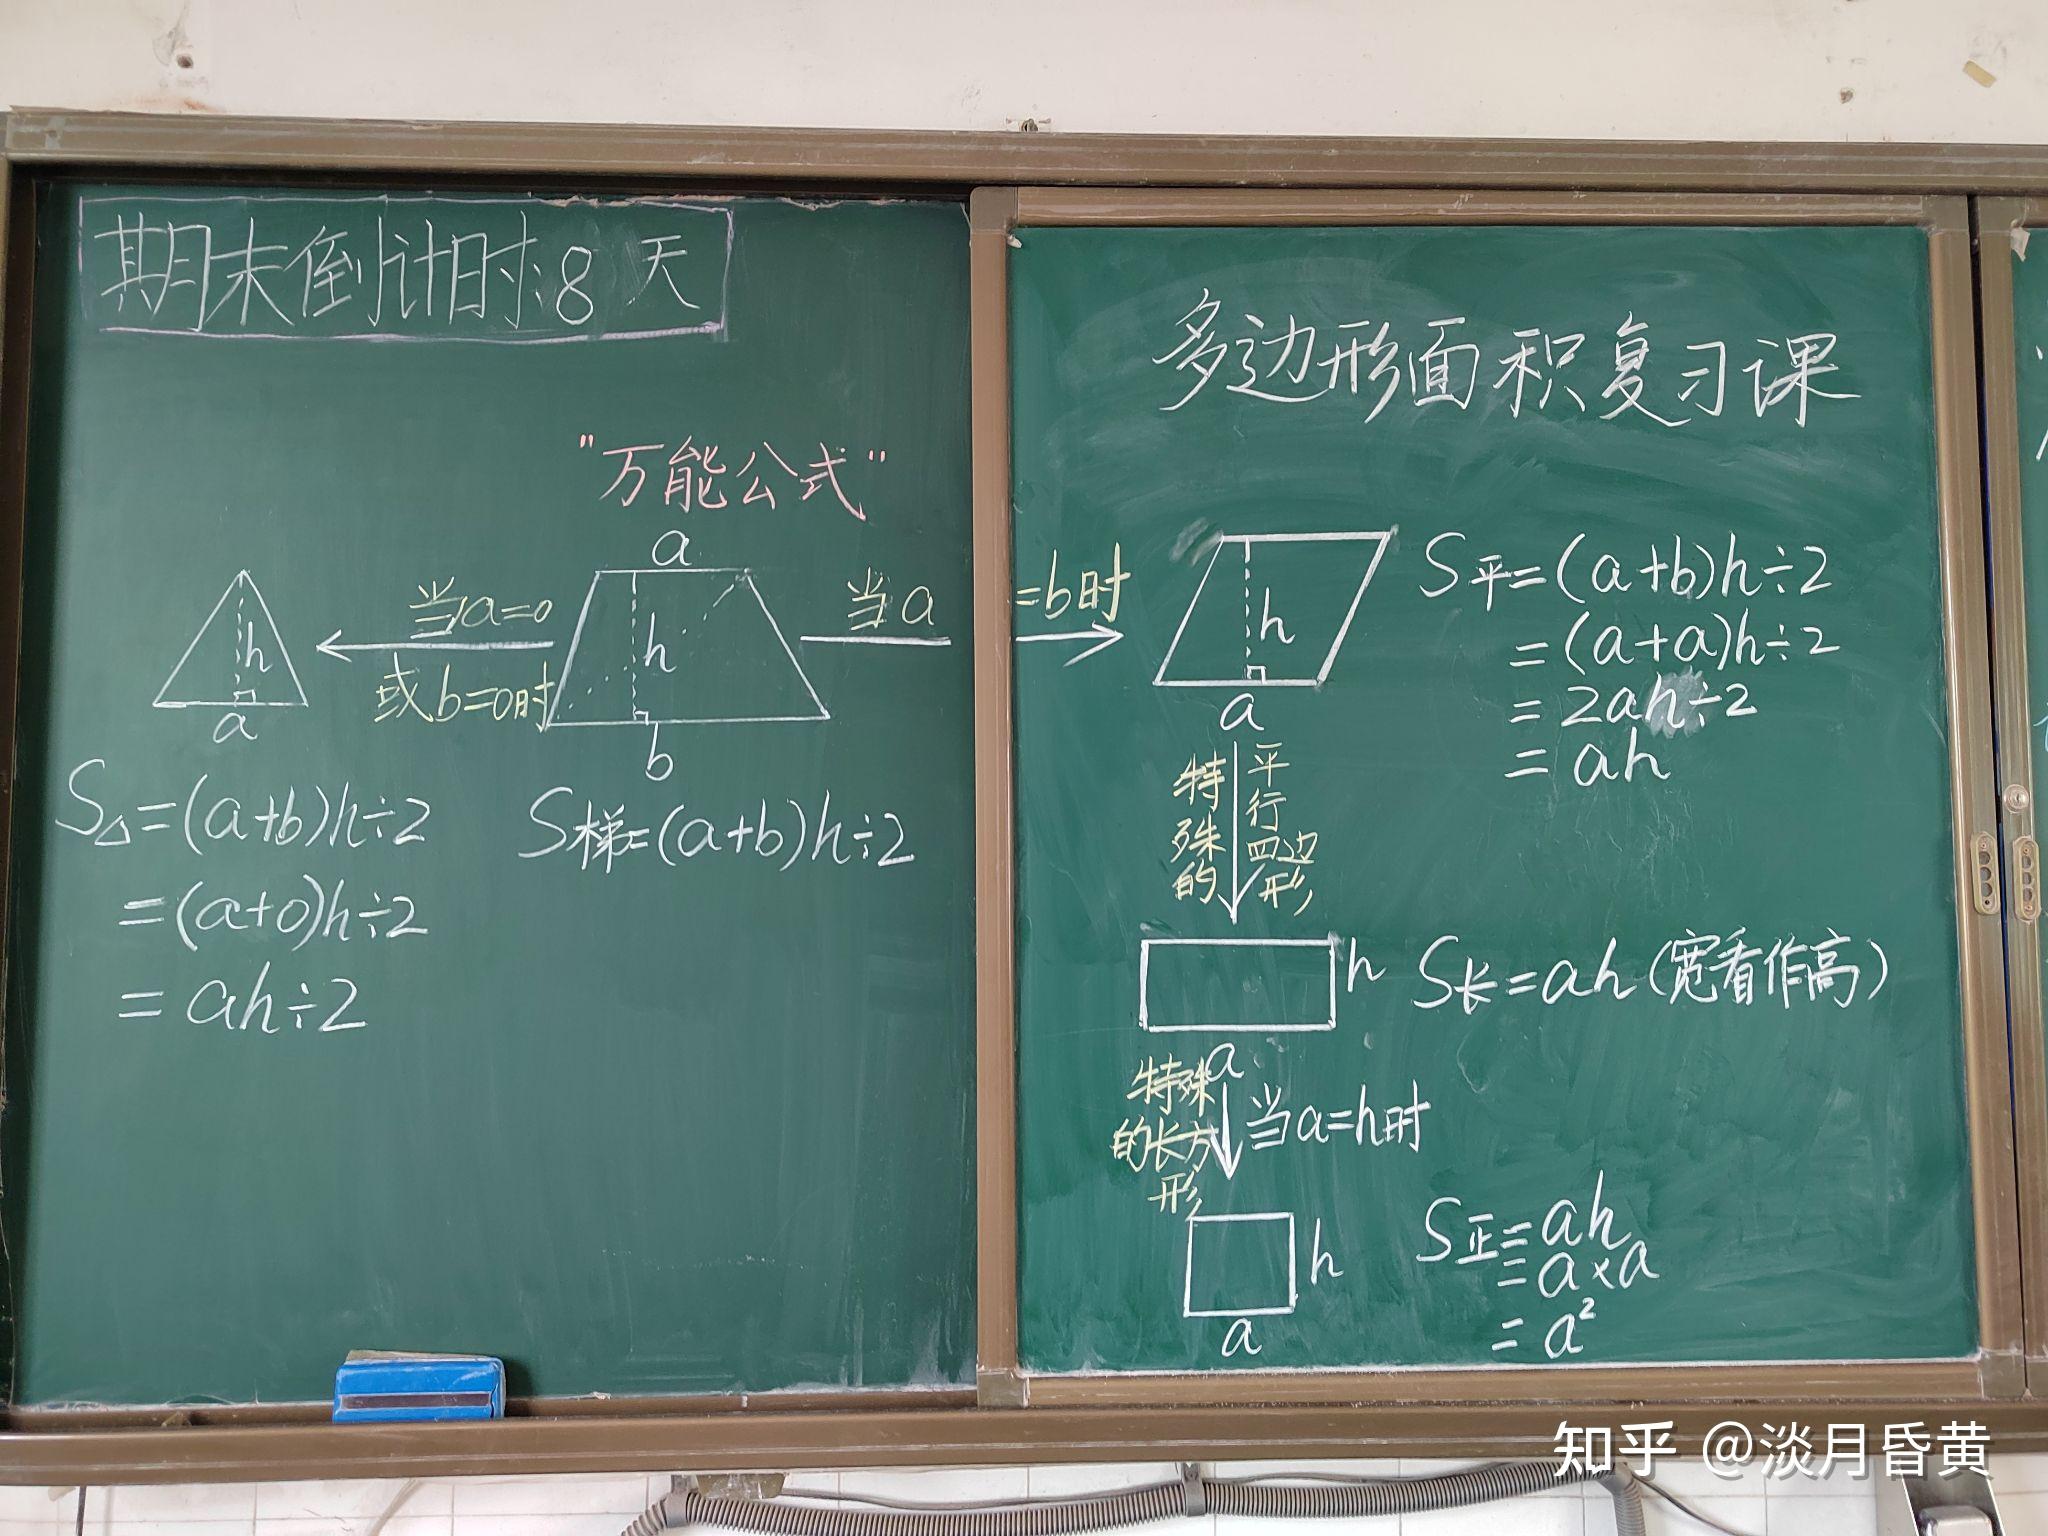 期末倒计时:8 天
"万能公式"
a
h
b
当a=0
或b=0时
h
a
S△=(a+b)h÷2
=(a+0)h÷2
=ah÷2
S梯=(a+b)h÷2
当a=b时
多边形面积复习课
h
a
S平=(a+b)h÷2
=(a+a)h÷2
=2ah÷2
=ah
特殊的
平行四边形
h
a
S长=ah(宽看作高)
特殊的长方形
当a=h时
h
a
S正=ah
=a×a
=a²
知乎 @淡月昏黄